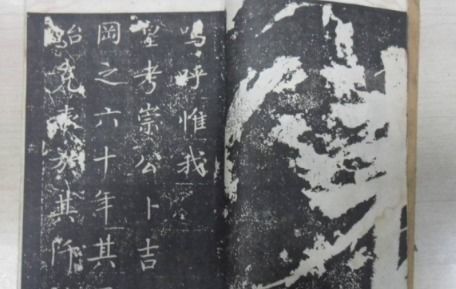 嗚呼惟我
皇考崇公卜吉
岡之六十年其
始克表於其阡